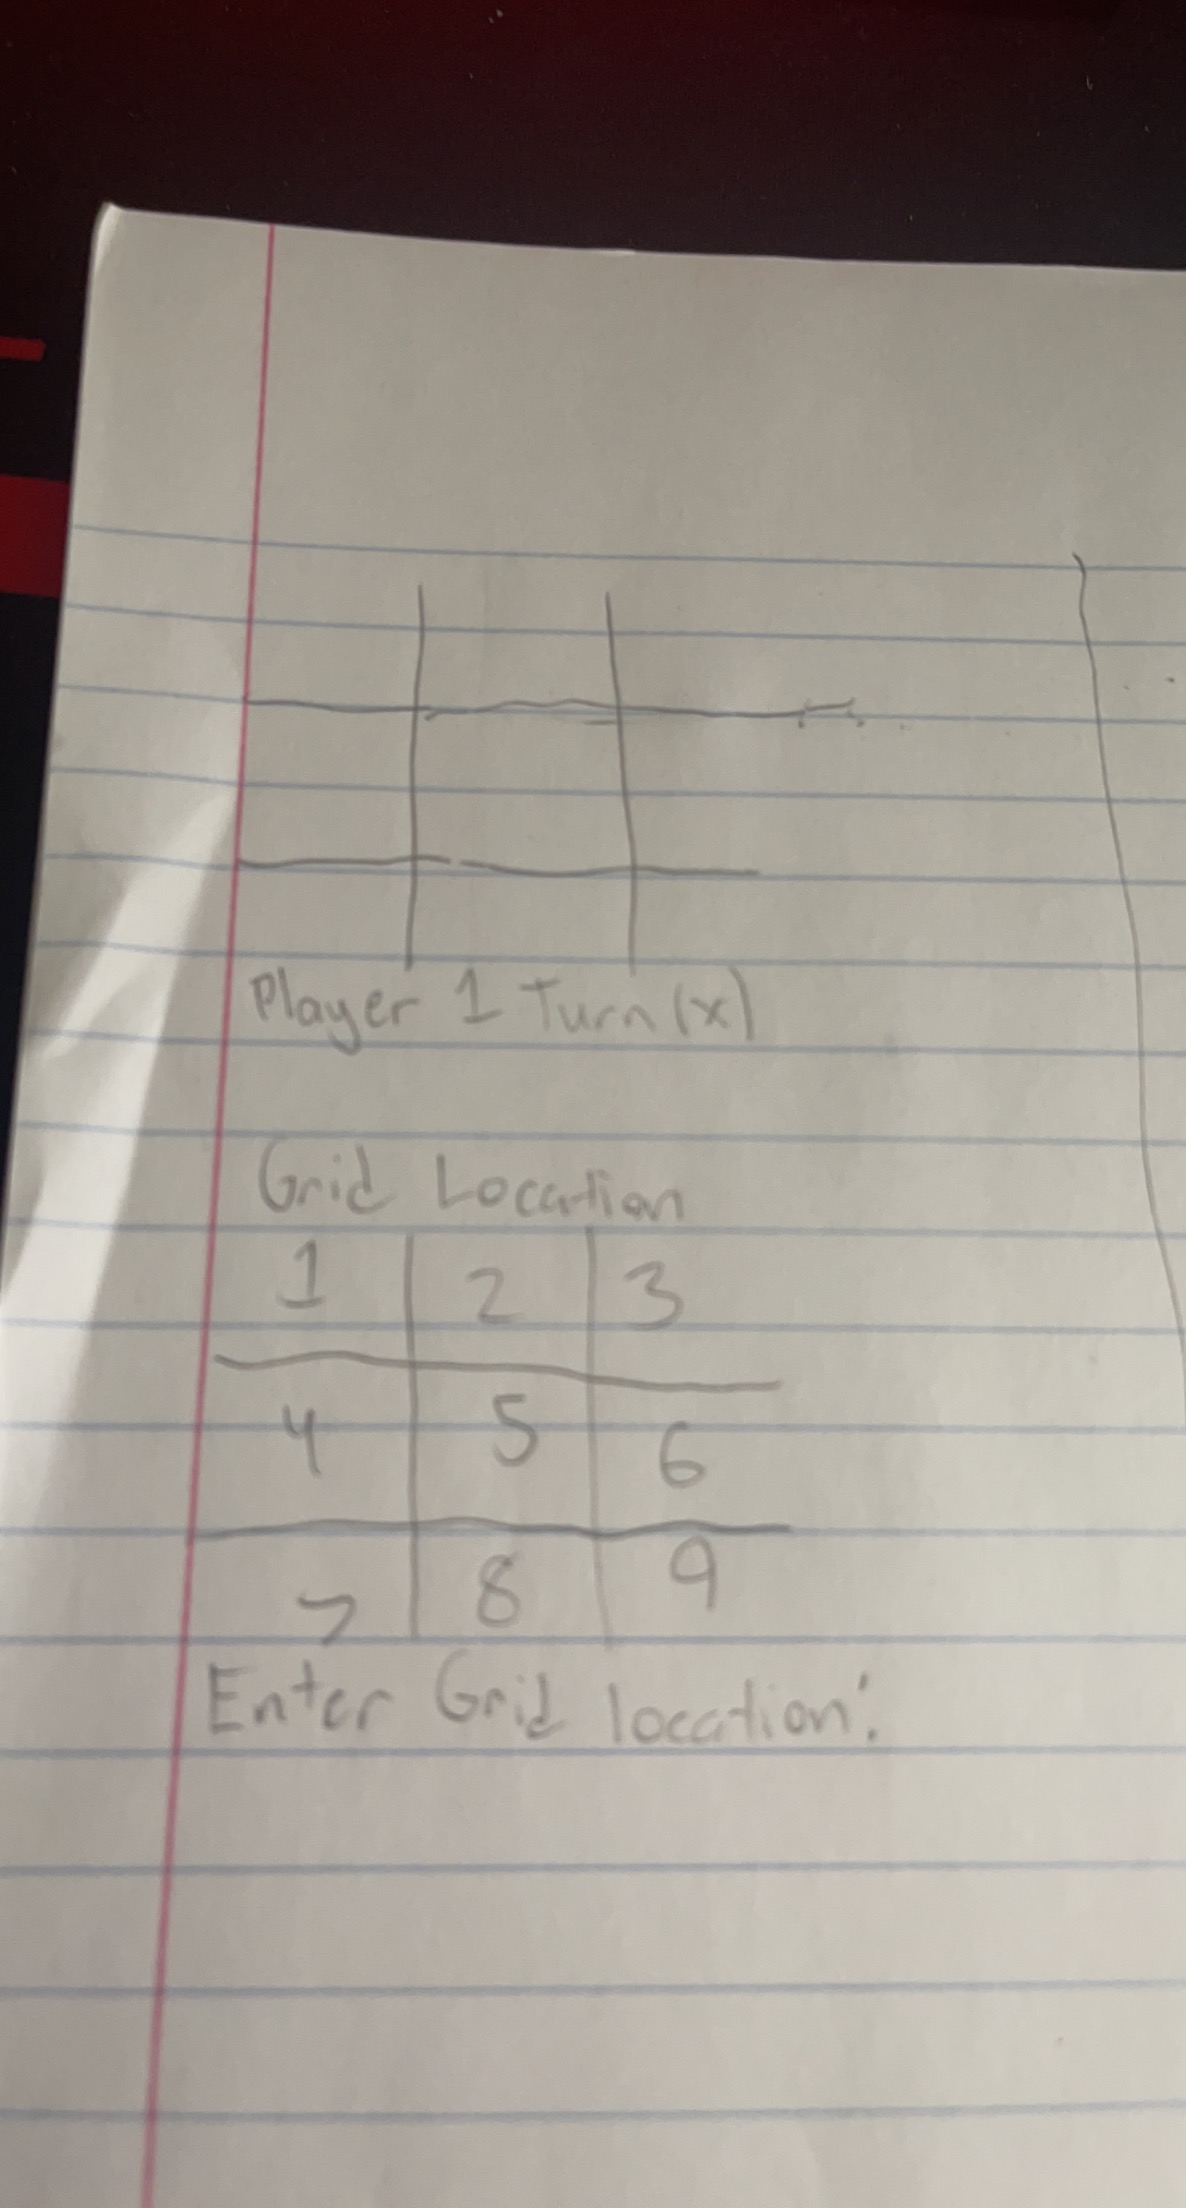 Player 1 Turn (x)
Grid Location
1 2 3
4 5 6
7 8 9
Enter Grid location: